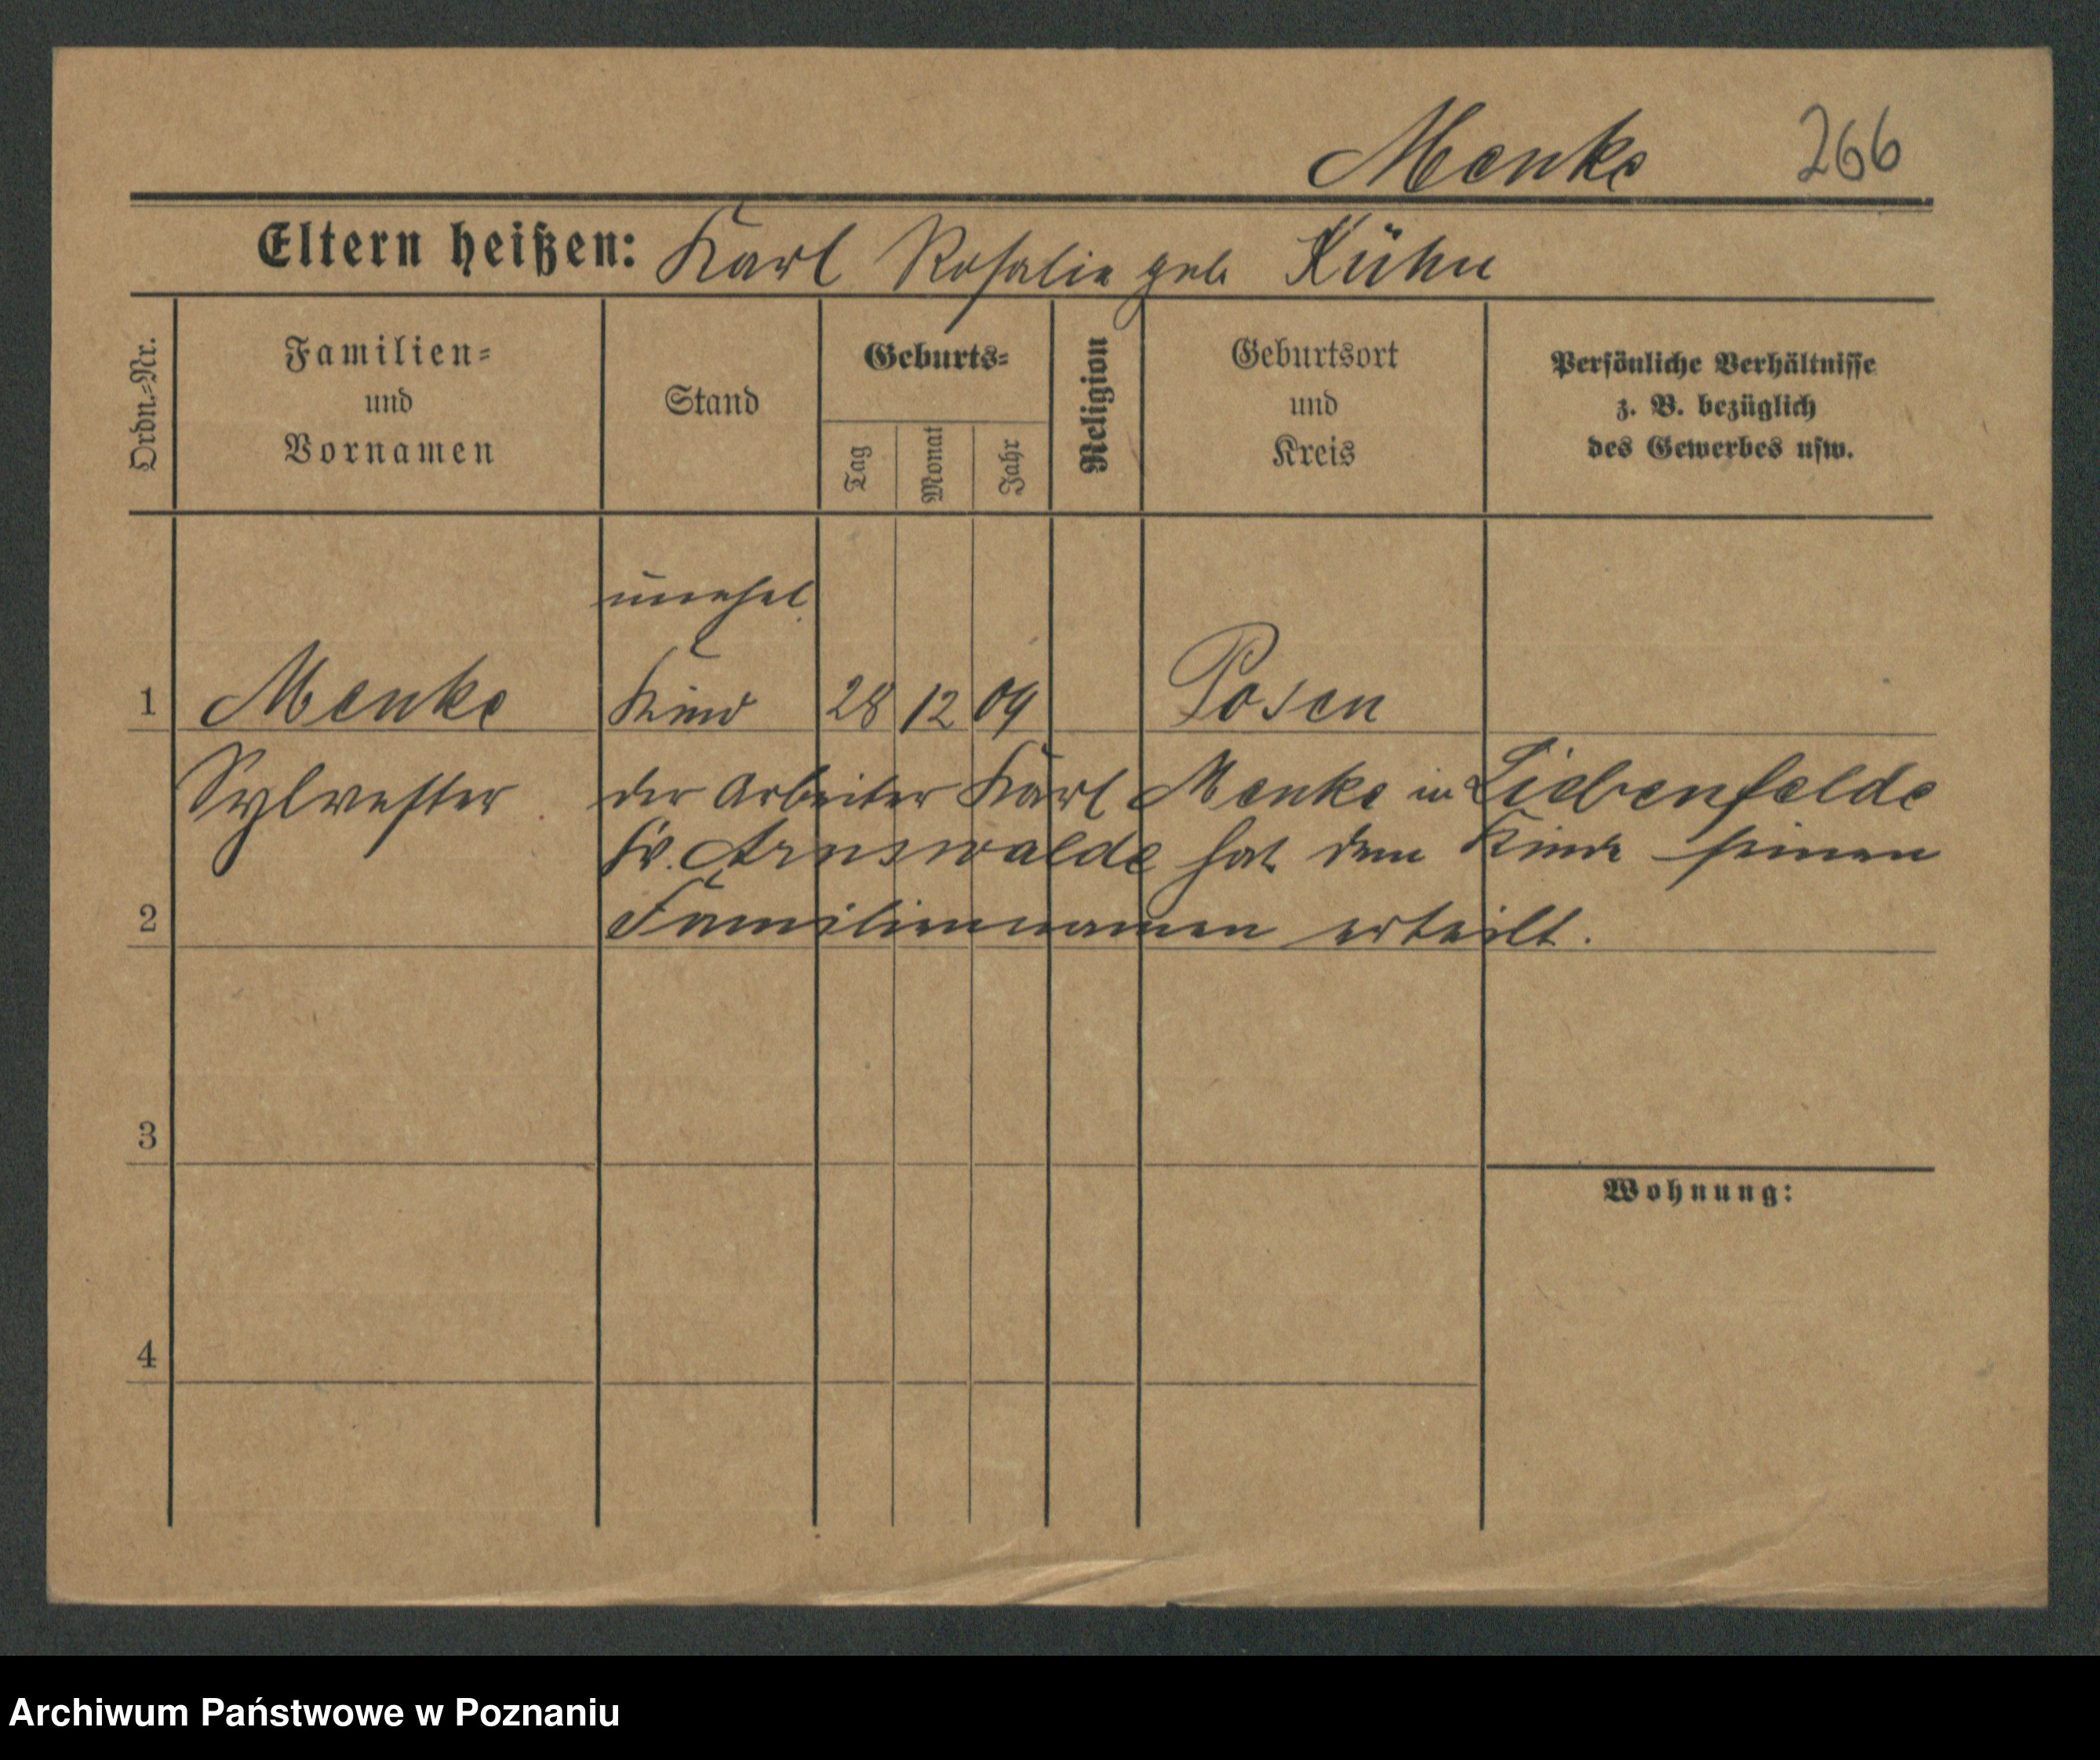 Menke 266
Eltern heißen: Karl Rosalie geb Kühn
Ordn.-Nr.
Familien-
und
Vornamen
Stand
Geburts-
Tag
Monat
Jahr
Religion
Geburtsort
und
Kreis
Persönliche Verhältnisse
z. B. bezüglich
des Gewerbes usw.
unehel.
1 Menke Kind 28 12 09 Posen
Sylvester der Arbeiter Karl Menke in Liebenfelde
Kr. Arnswalde hat dem Kinde seinen
2 Familiennamen erteilt.
3
Wohnung:
4
Archiwum Państwowe w Poznaniu